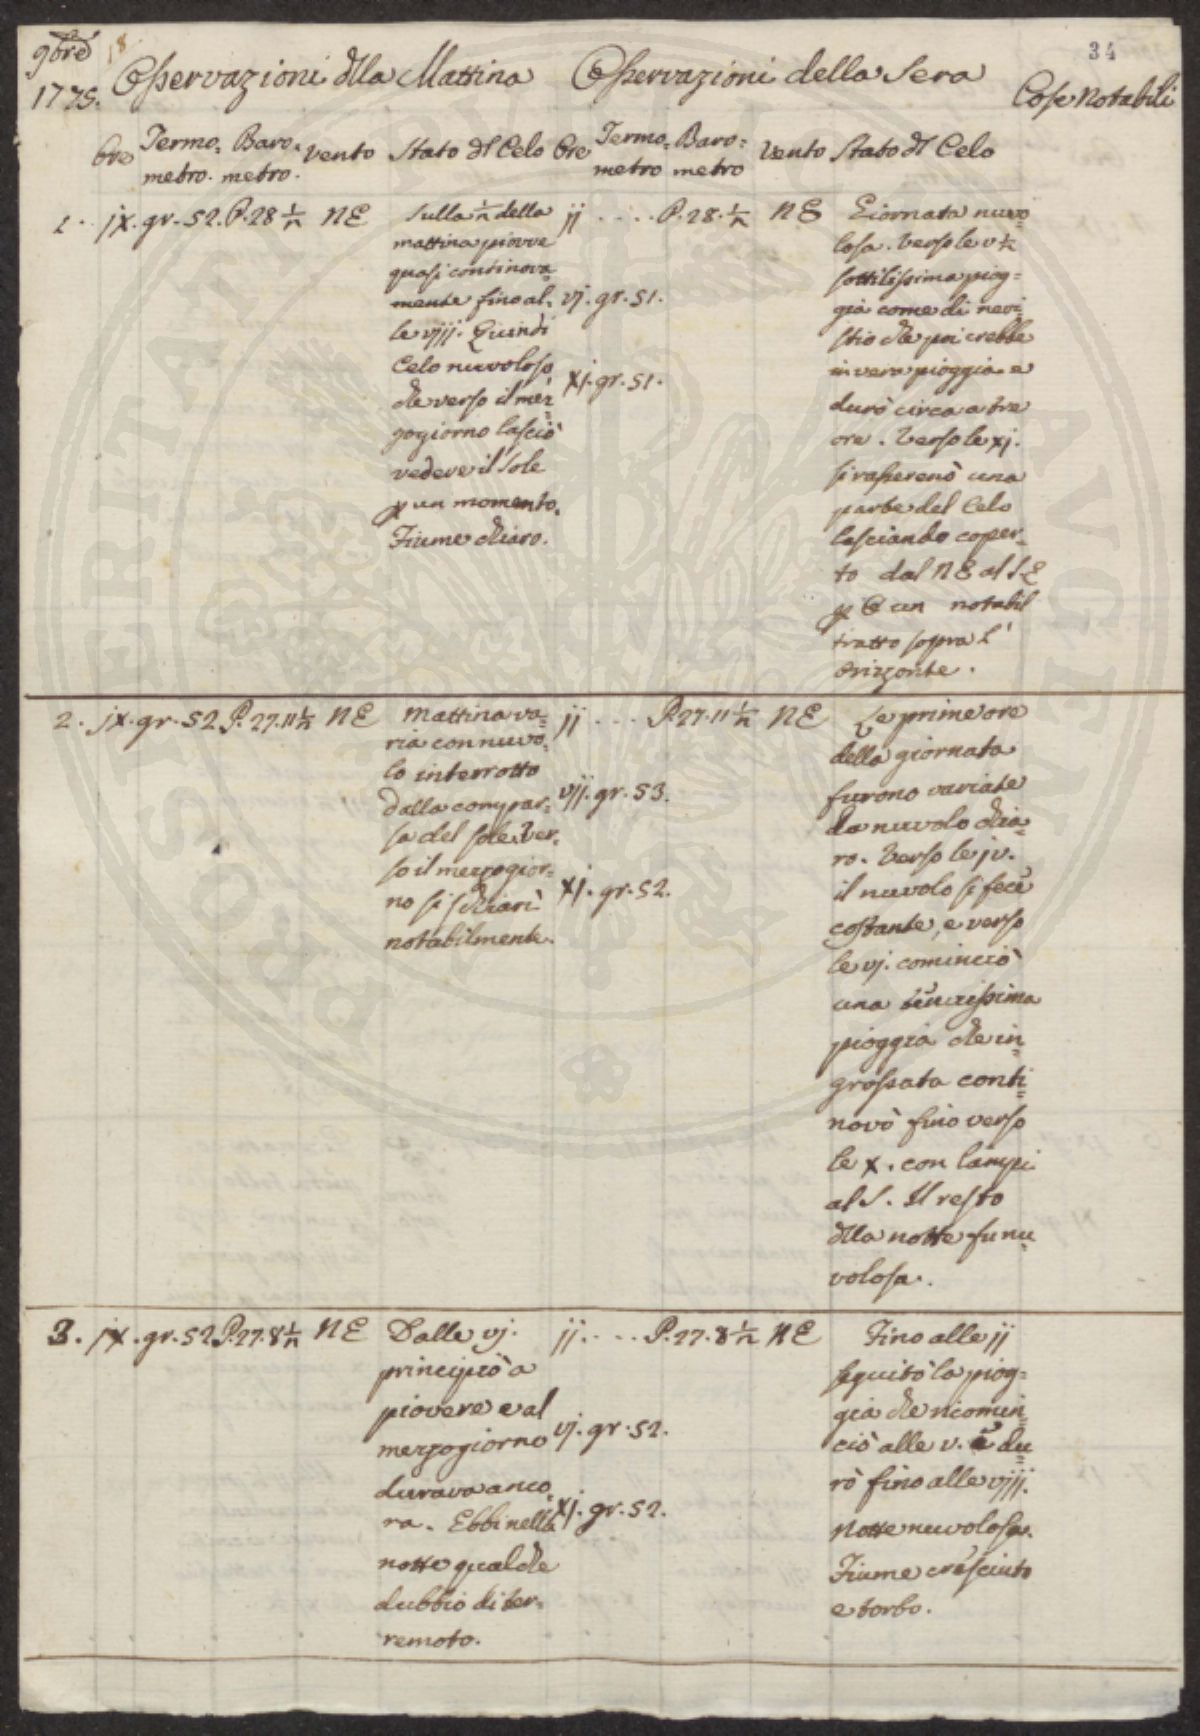 9bre
18
1775.
Osservazioni dlla Mattina
Osservazioni della Sera
34
Cose Notabili
Ore
Termo=
metro.
Baro=
metro.
Vento
Stato dl Celo
Ore
Termo=
metro
Baro=
metro
Vento
Stato dl Celo
1. jx. gr. 52. P. 28 1/n NE
Sulla 1/n della
mattina piovve
quasi continova=
mente fino al=
le viij. Quindi
Celo nuvoloso
che verso il mez
zogiorno lasciò
vedere il Sole
p un momento.
Fiume chiaro.
ij .... P. 28. 1/n NE
vj. gr. 51.
xj. gr. 51.
Giornata nuvo=
losa. Verso le v 1/n
sottilissima piog=
gia come di nevi=
stio che poi crebbe
in vera pioggia e
durò circa a tre
ore. Verso le xj.
si rasserenò una
parte del Celo
lasciando coper=
to dal NE al SE
p E un notabil
tratto sopra l'
Orizzonte.
2. jx. gr. 52 P. 27. 11 1/n NE
Mattina va=
ria con nuvo=
lo interrotto
dalla compar=
sa del sole. Ver=
so il mezzogior=
no si schiarì
notabilmente.
ij .... P. 27. 11 1/n NE
vij. gr. 53.
xj. gr. 52.
Le prime ore
della giornata
furono variate
da nuvolo chia=
ro. Verso le jv.
il nuvolo si fece
costante, e verso
le vj. cominciò
una
pioggia che in=
grossata conti=
novò fino verso
le x. con lampi
al S. Il resto
dlla notte fu nu=
volosa.
3. jx. gr. 52 P. 27. 8 1/n NE
Dalle vj.
principiò a
piovere e al
mezzogiorno
durava anco=
ra. Ebbi nella
notte qualche
dubbio di ter=
remoto.
ij. ... P. 27. 8 1/n NE
vj. gr. 52.
xj. gr. 52.
Fino alle ij
seguitò la piog=
gia che ricomin=
ciò alle v. e du=
rò fino alle viij.
Notte nuvolosa.
Fiume cresciuto
e torbo.